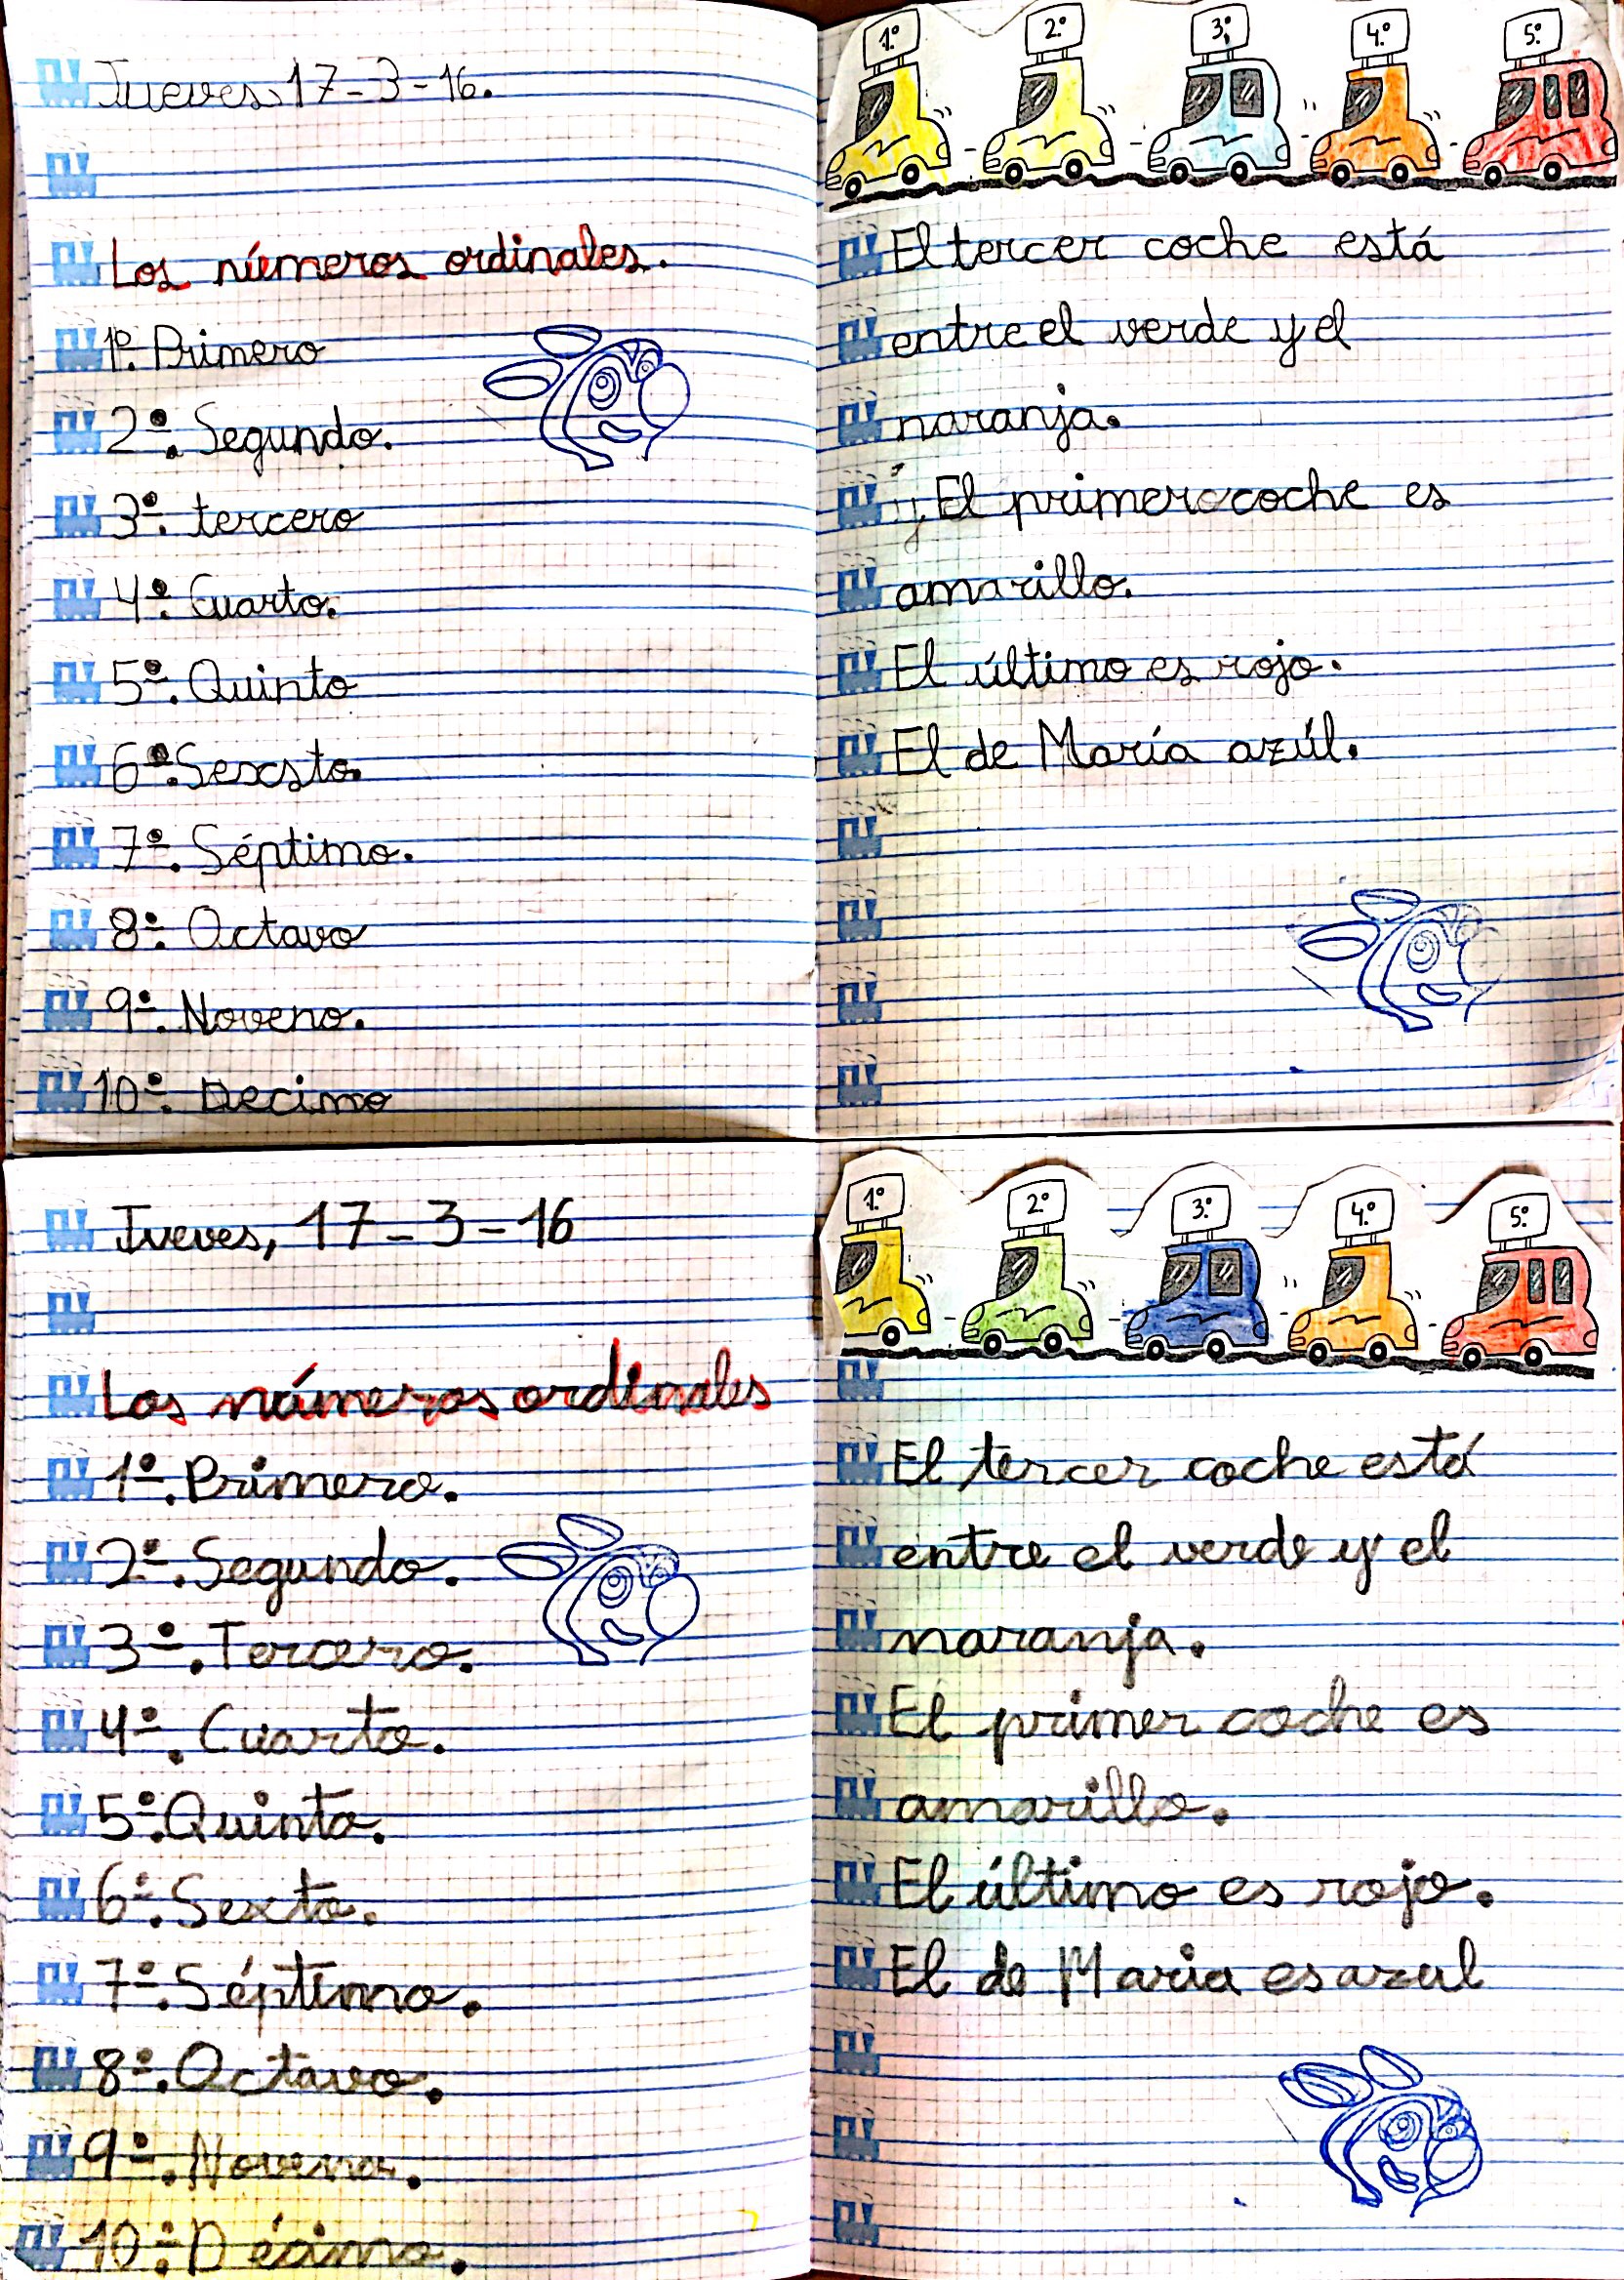 Jueves, 17-3-16.
Los números ordinales.
1º. Primero
2º. Segundo.
3º. tercero
4º. Cuarto.
5º. Quinto
6º. Sexsto.
7º. Séptimo.
8º. Octavo
9º. Noveno.
10º. Decimo
1º 2º 3º 4º 5º
El tercer coche está
entre el verde y el
naranja.
El primero coche es
amarillo.
El último es rojo.
El de María azúl.
Jueves, 17-3-16
Los números ordinales
1º. Primero.
2º. Segundo.
3º. Tercero.
4º. Cuarto.
5º. Quinto.
6º. Sexto.
7º. Séptimo.
8º. Octavo.
9º. Noveno.
10º. Décimo.
1º 2º 3º 4º 5º
El tercer coche está
entre el verde y el
naranja.
El primer coche es
amarillo.
El último es rojo.
El de Maria es azul